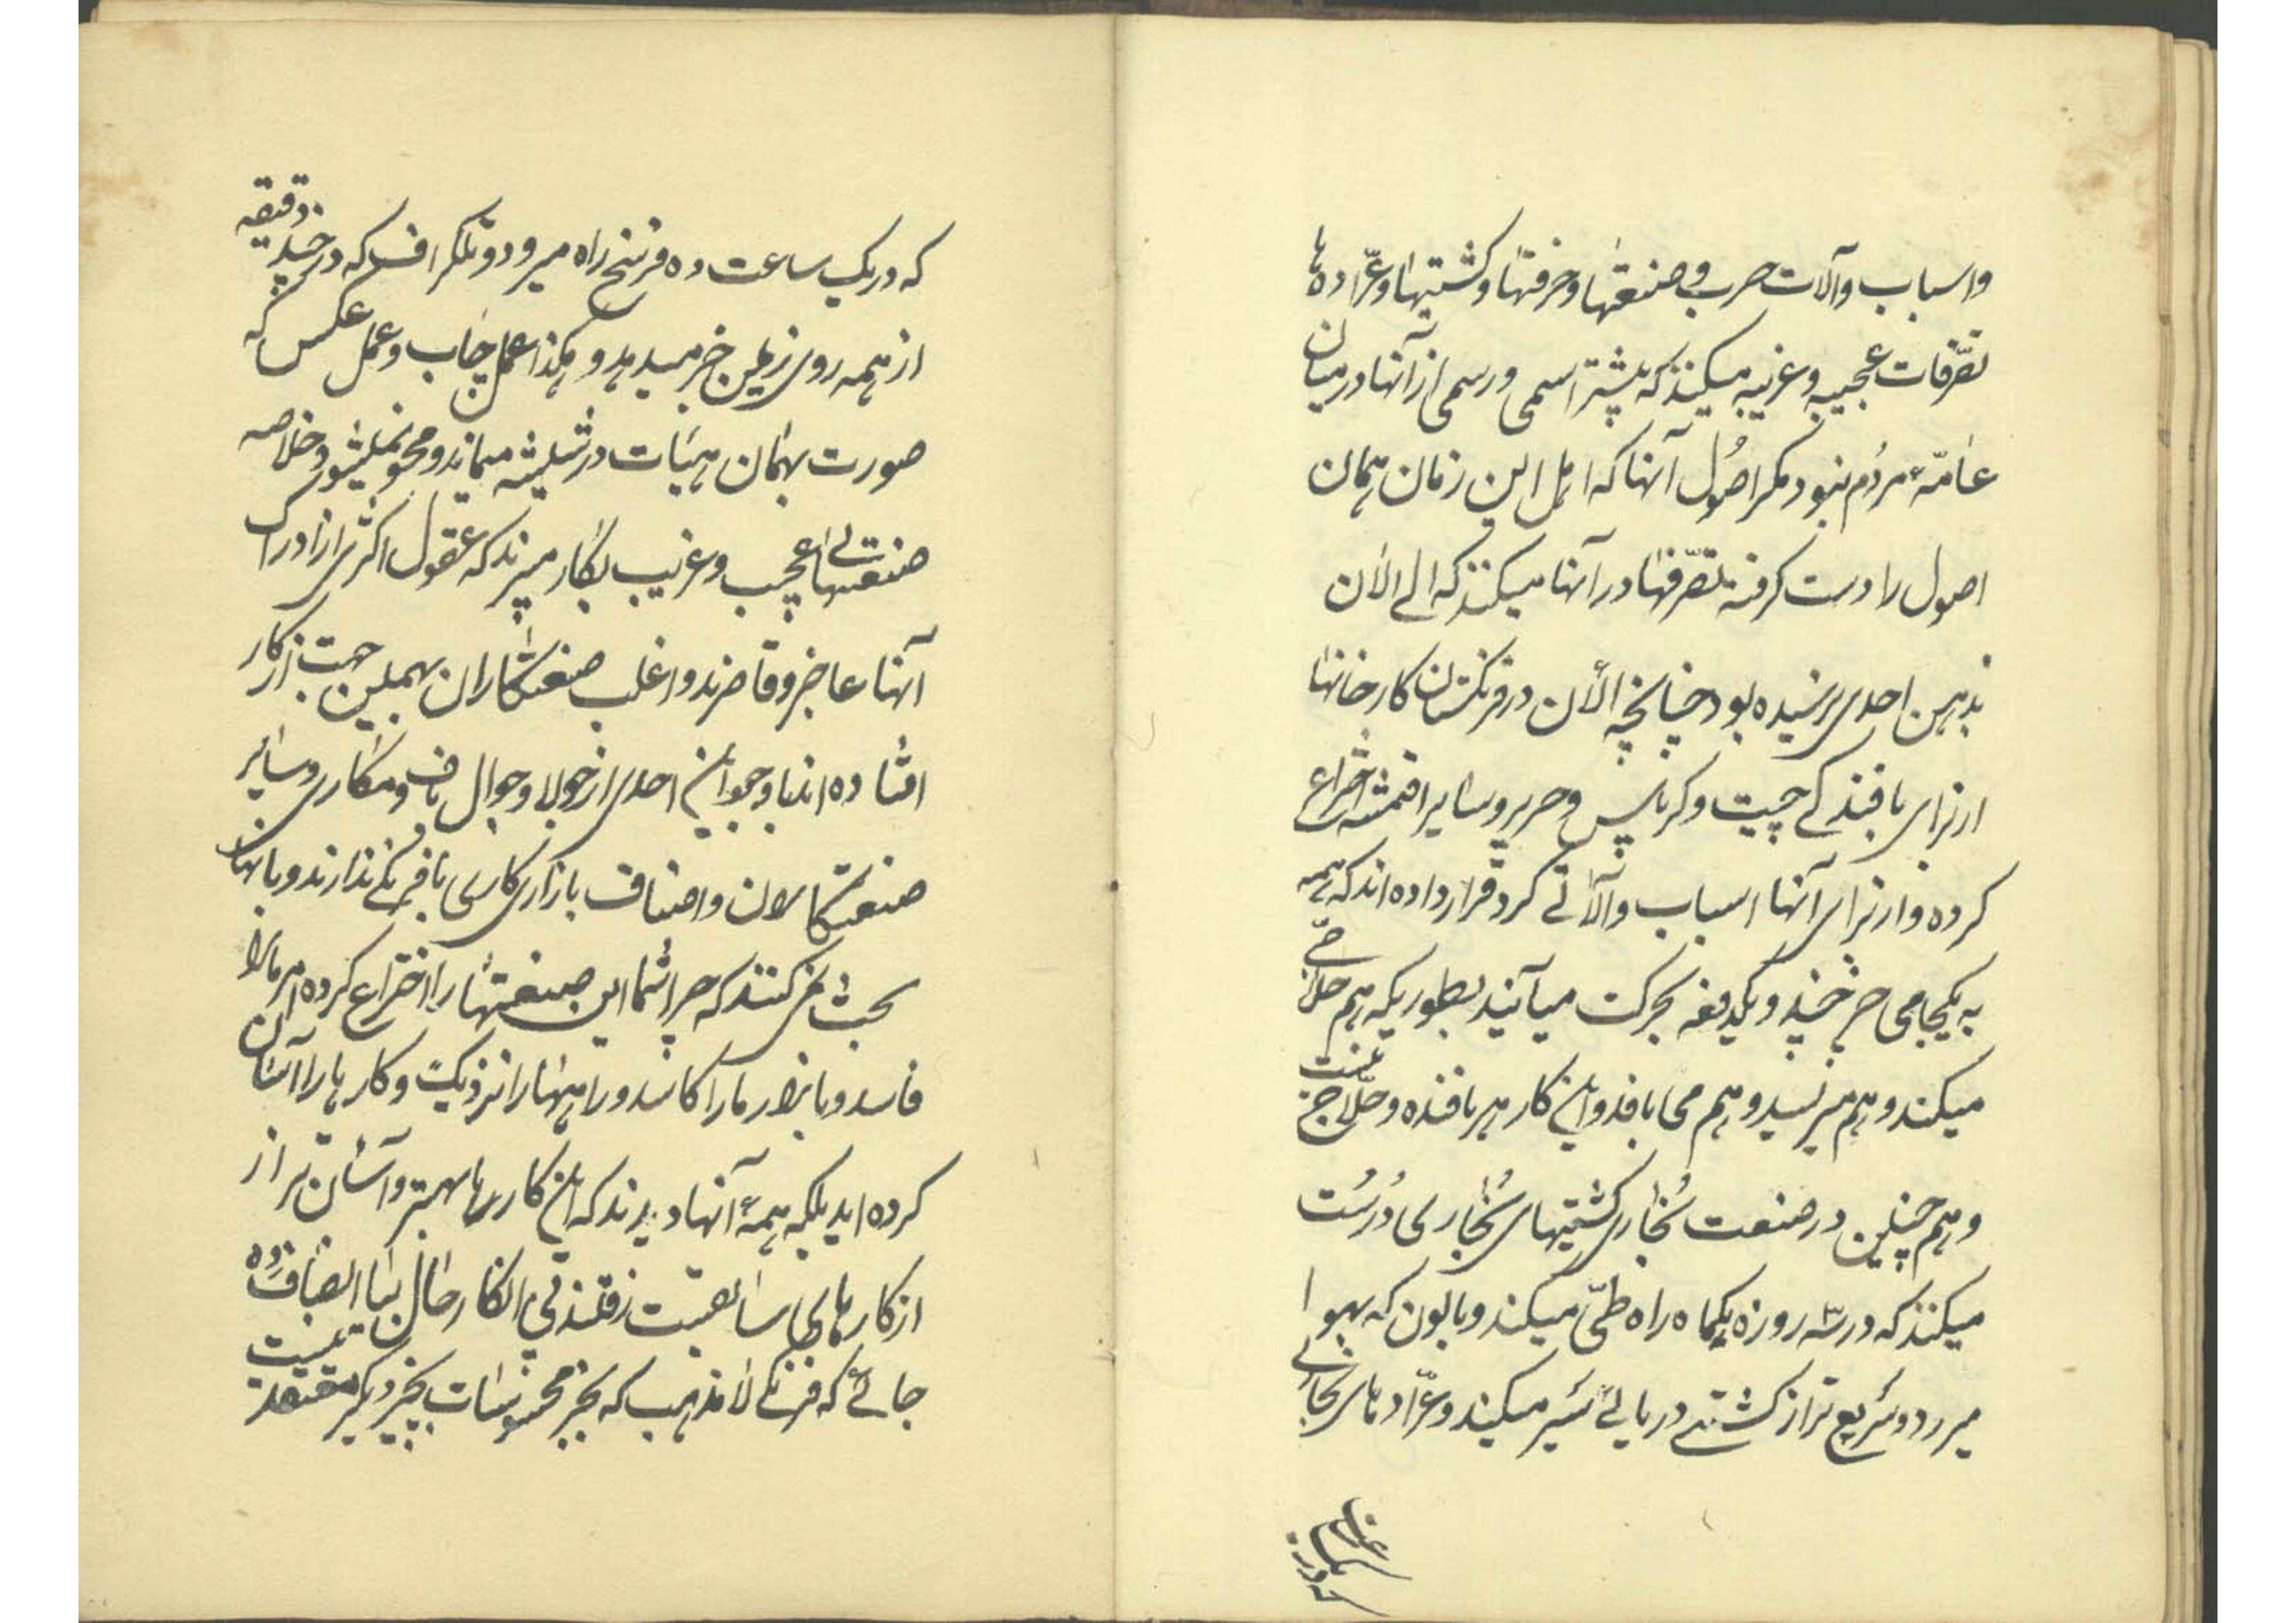 واسباب وآلات حرب وصنعتها وحرفتها وکشتیها وعرّاده ها
تصرّفات عجیبه وغریبه میکنند که پیشتر اسمی ورسمی از آنها در میان
عامّهٔ مردُم نبود مکر اصُول آنها که اهل این زمان همان
اصول را دست کرفته تصرّفها در آنها میکنند که الی الان
بذهن احدی نرسیده بود چنانچه الأن در فرنکستان کارخانها
از برای بافندکی چیت وکرباس وحریر وسایر اقمشه اختراع
کرده واز برای آنها اسباب وآلاتی کرد قرار داده اند که همه
به یکجا می چرخند ویکدفعه بحرکت میآیند بطوریکه هم حلاّجی
میکند وهم میریسد وهم می بافد واین کار هر بافنده وحلاّج نیست
وهم چنین در صنعت بُخاری کشتیهای بُخاری دُرسُت
میکنند که در سّه روزه یکماه راه طیّ میکند وبالون که بهوا
میرود وسَریع تر از کشتی دریائی سَیر میکند وعرّاد های بخاری
که در یک ساعت
که در یک ساعت ده فرسخ راه میرود وتلکراف که در چند دقیقه
از همه روی زمین خبر میدهد وهکذا عمل چاپ وعمل عکس که
صورت بهمان هیئات در شیشه میماند ومحو نمیشود وخلاصه
صنعتهای عجیب وغریب بکار میبرند که عقول اکثری از ادراک
آنها عاجز وقاصرند واغلب صنعتکاران بهمین جهت از کار
افتاده اند با وجود این احدی از جولا وجوال باف ومکاری وسایر
صنعتکاران واصناف بازاری کاری با فرنکی ندارند وبا آنها
بحث نمی کنند که چرا شما این صنعتها را اختراع کرده امر ما را
فاسد وبازار ما را کاسد وراهها را نزدیک وکارها را آسان
کرده اید بلکه همهٔ آنها دیدند که این کارها بهتر وآسان تر از
از کارهای سابقست رفتند پی انکار حال بیا انصاف ده
جائی که فرنکی لامذهب که بجز محسوسات بچیز دیکر معتقد نیست